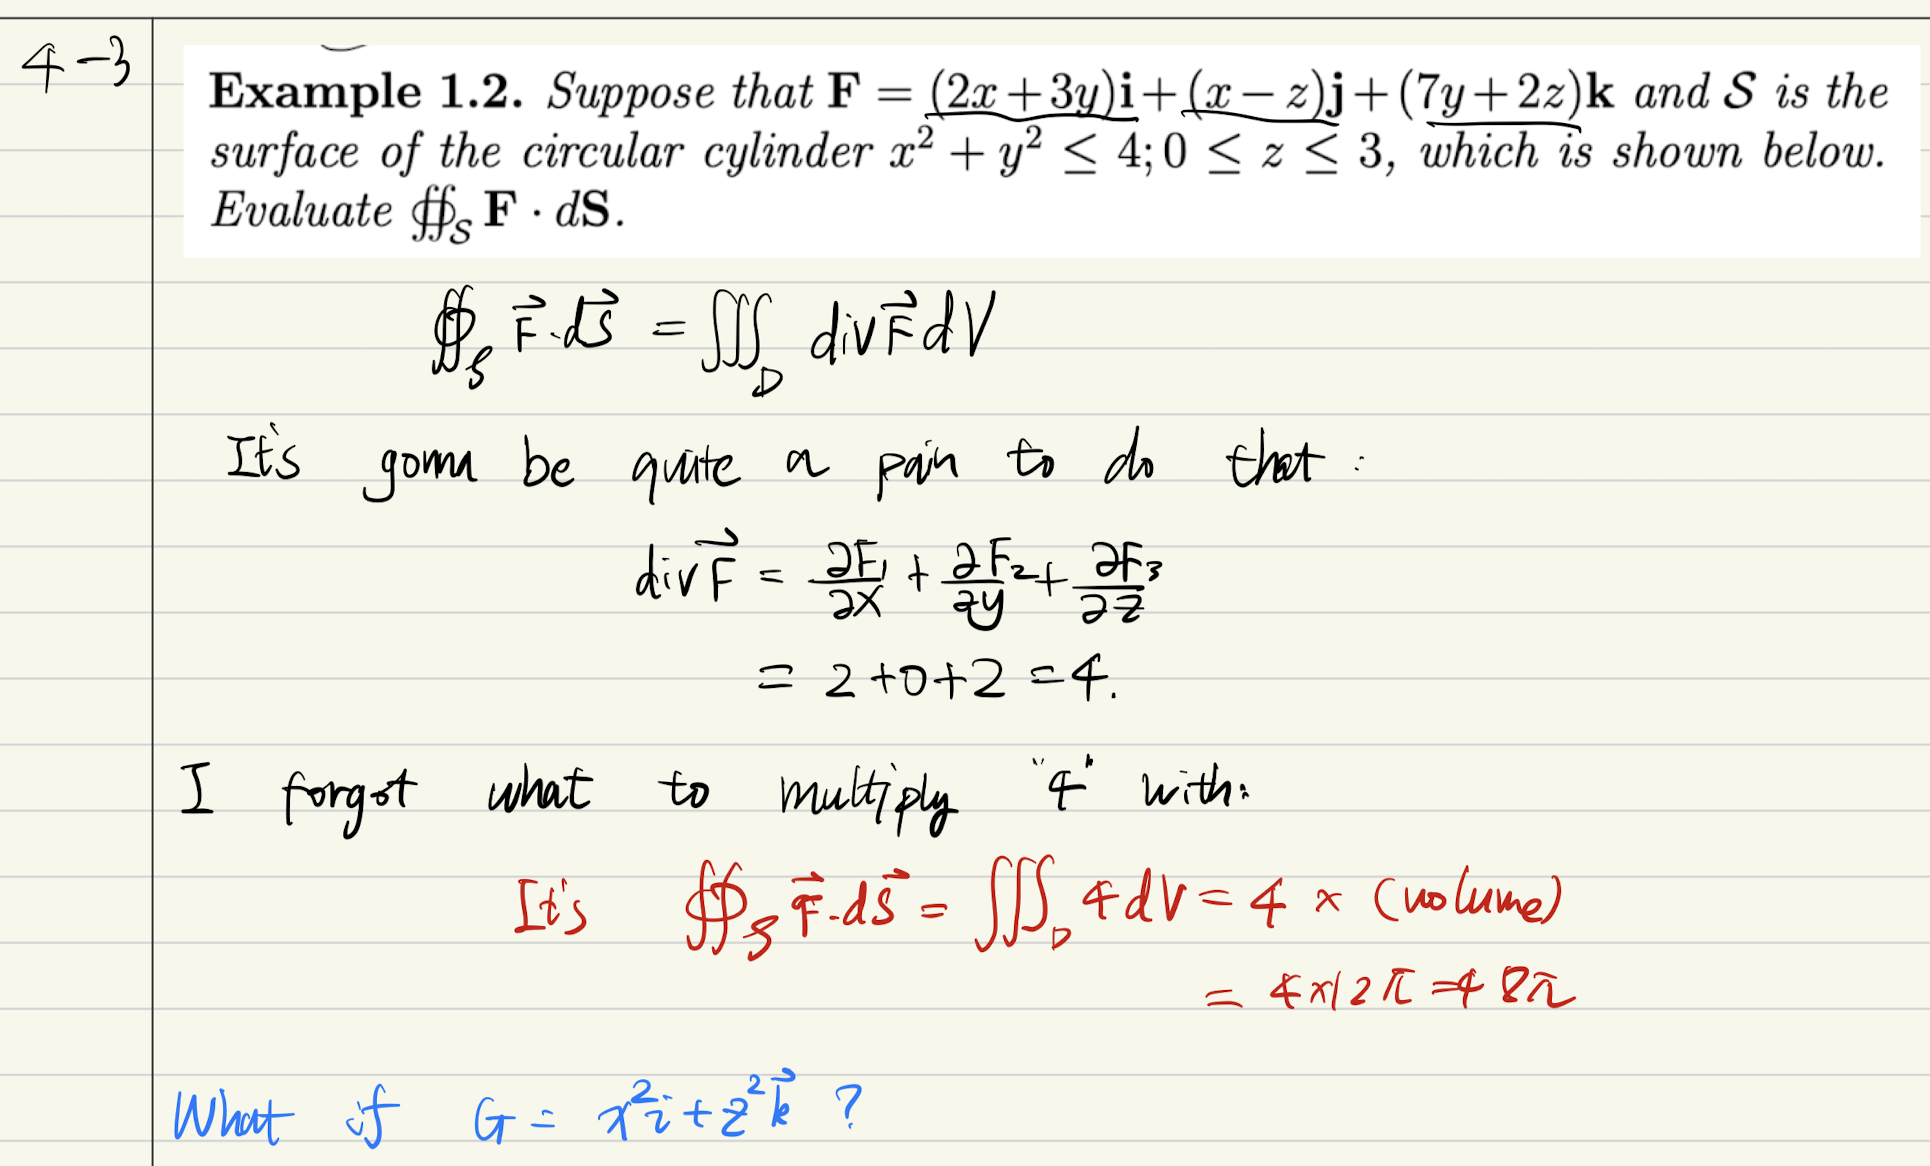 4-3
Example 1.2. Suppose that F = (2x+3y)i+(x−z)j+(7y+2z)k and S is the
surface of the circular cylinder x² + y² ≤ 4; 0 ≤ z ≤ 3, which is shown below.
Evaluate ∯_S F · dS.
∯_S F⃗·dS⃗ = ∭_D div F⃗ dV
It's gonna be quite a pain to do that :
div F⃗ = ∂F₁/∂x + ∂F₂/∂y + ∂F₃/∂z
= 2+0+2 = 4.
I forgot what to multiply "4" with:
It's ∯_S F⃗·dS⃗ = ∭_D 4dV = 4 × (volume)
= 4×12π = 48π
What if G = x²i + z²k⃗ ?